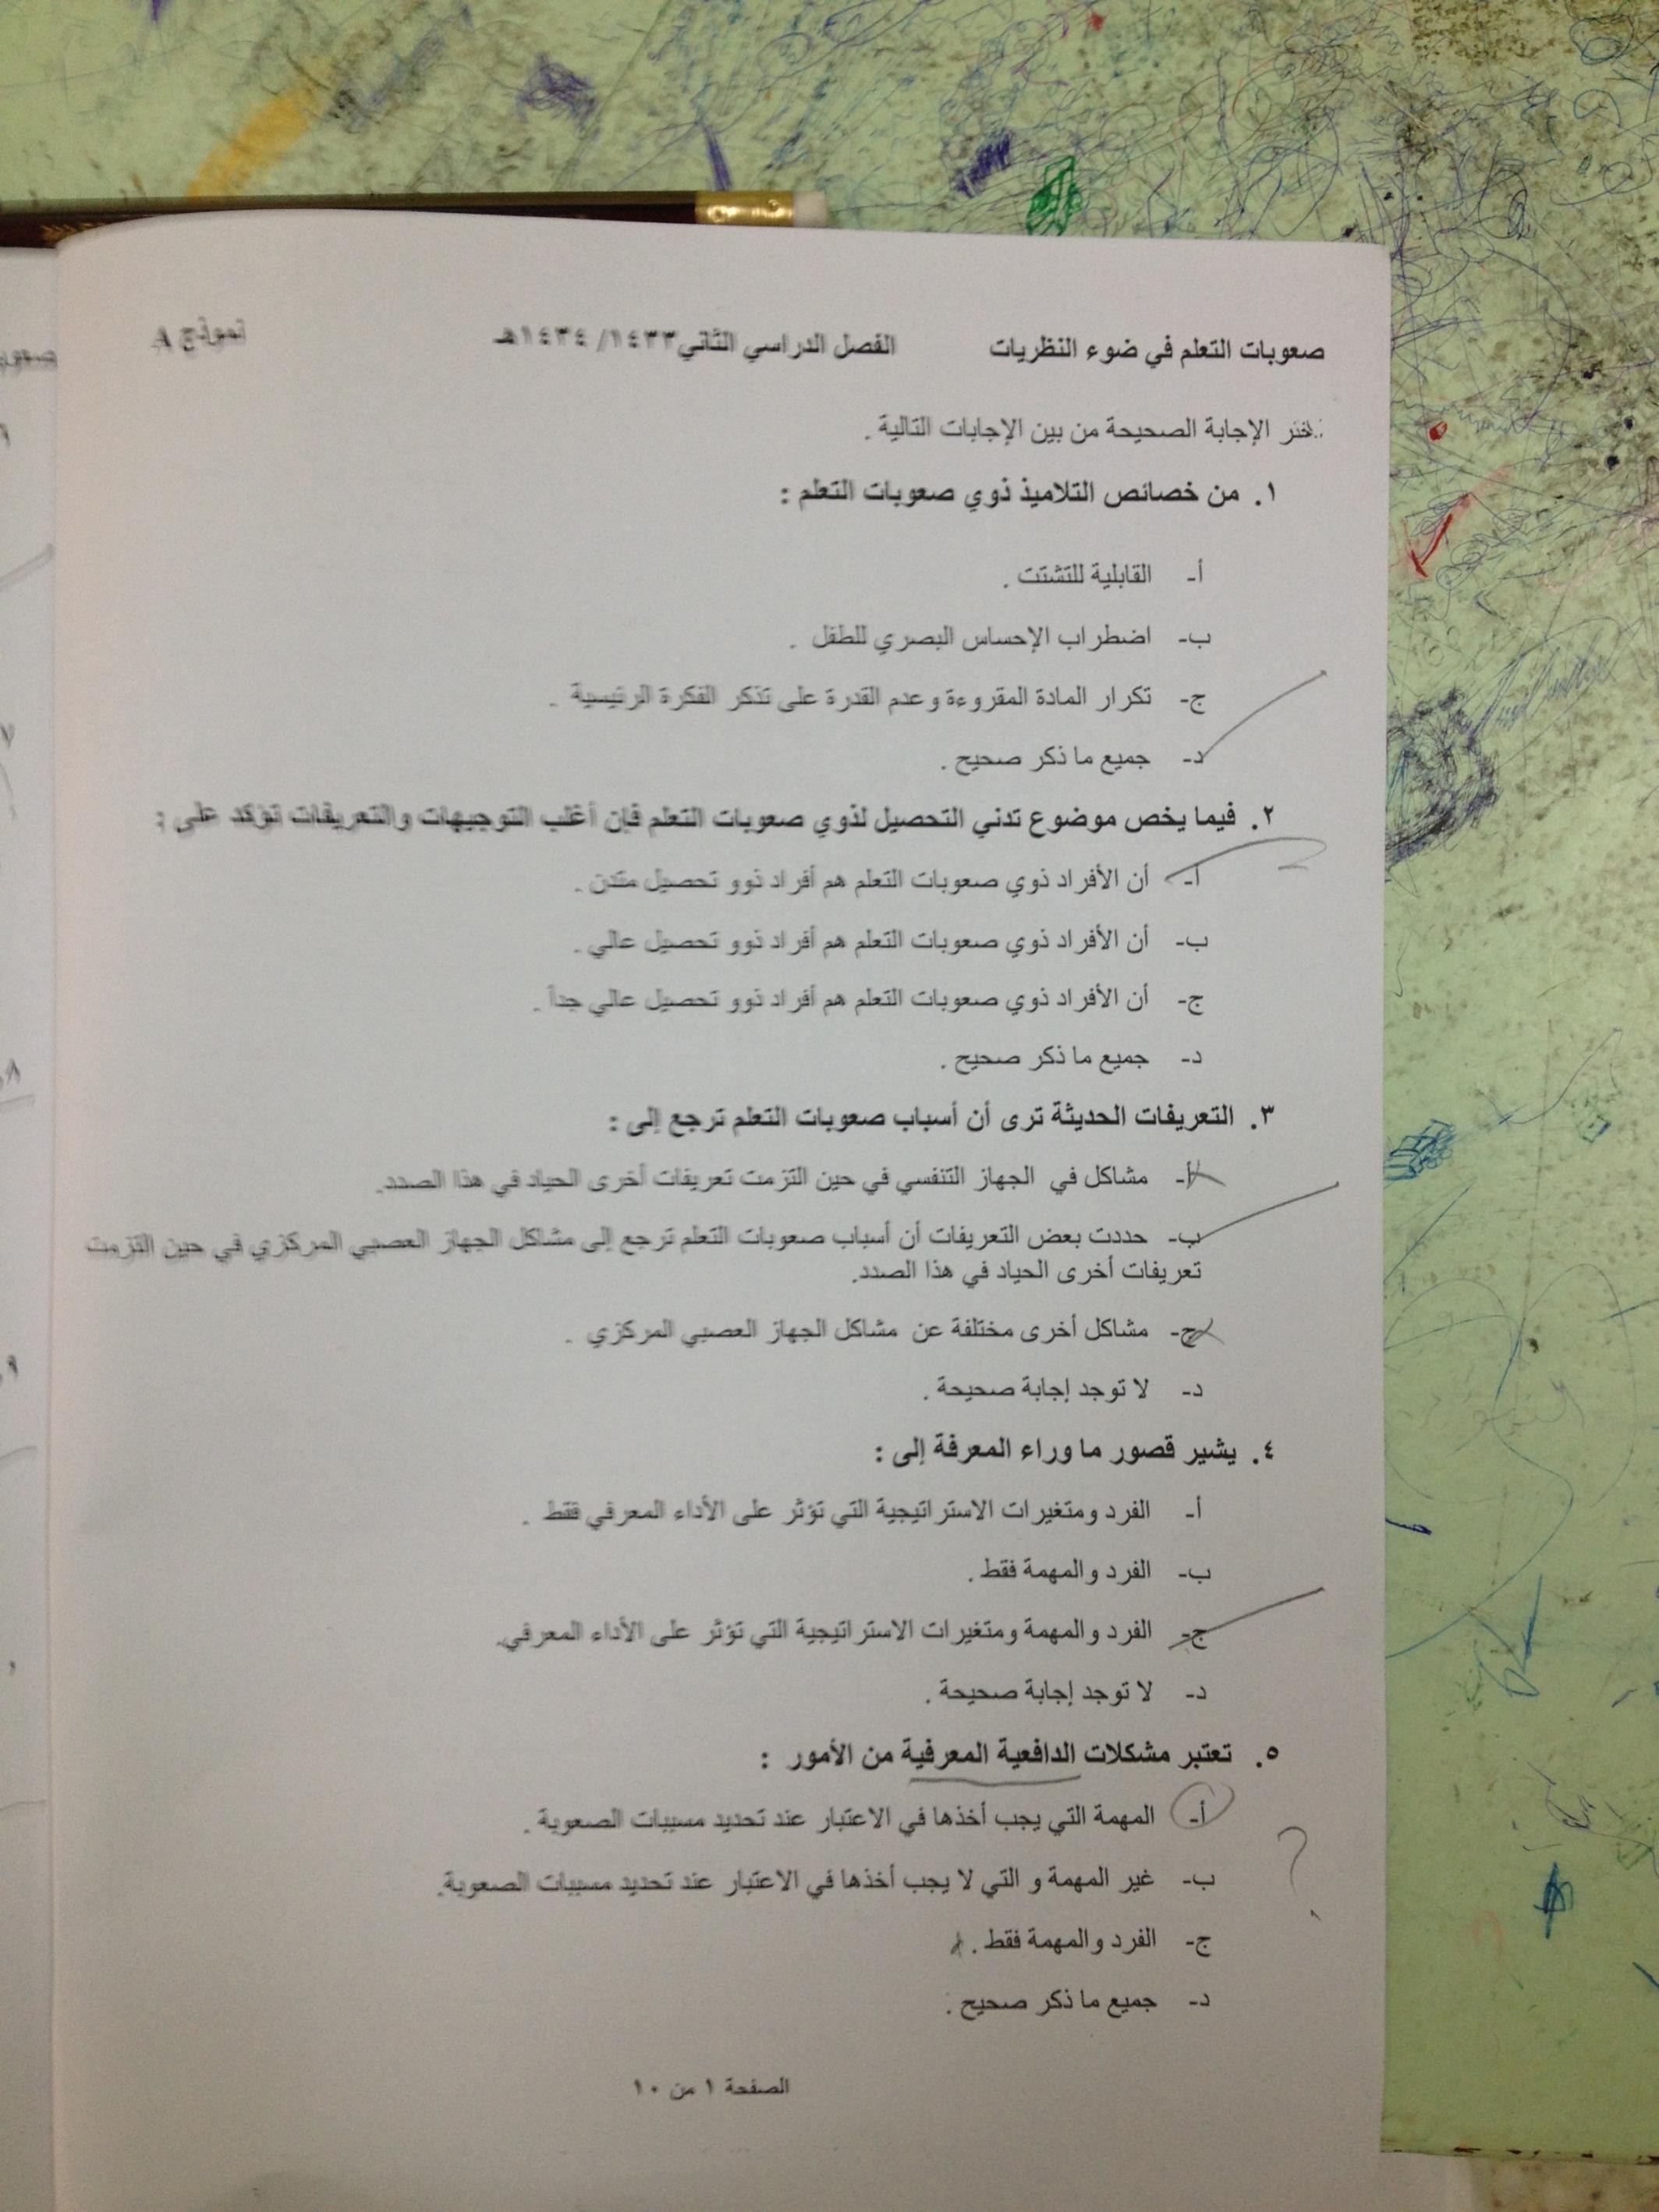 صعوبات التعلم في ضوء النظريات الفصل الدراسي الثاني ١٤٣٣/ ١٤٣٤هـ نموذج A
اختر الإجابة الصحيحة من بين الإجابات التالية .
١. من خصائص التلاميذ ذوي صعوبات التعلم :
أ- القابلية للتشتت .
ب- اضطراب الإحساس البصري للطفل .
ج- تكرار المادة المقروءة وعدم القدرة على تذكر الفكرة الرئيسية .
د- جميع ما ذكر صحيح .
٢. فيما يخص موضوع تدني التحصيل لذوي صعوبات التعلم فإن أغلب التوجيهات والتعريفات تؤكد على :
أ- أن الأفراد ذوي صعوبات التعلم هم أفراد ذوو تحصيل متدن .
ب- أن الأفراد ذوي صعوبات التعلم هم أفراد ذوو تحصيل عالي .
ج- أن الأفراد ذوي صعوبات التعلم هم أفراد ذوو تحصيل عالي جداً .
د- جميع ما ذكر صحيح .
٣. التعريفات الحديثة ترى أن أسباب صعوبات التعلم ترجع إلى :
أ- مشاكل في الجهاز التنفسي في حين التزمت تعريفات أخرى الحياد في هذا الصدد.
ب- حددت بعض التعريفات أن أسباب صعوبات التعلم ترجع إلى مشاكل الجهاز العصبي المركزي في حين التزمت
تعريفات أخرى الحياد في هذا الصدد.
ج- مشاكل أخرى مختلفة عن مشاكل الجهاز العصبي المركزي .
د- لا توجد إجابة صحيحة .
٤. يشير قصور ما وراء المعرفة إلى :
أ- الفرد ومتغيرات الاستراتيجية التي تؤثر على الأداء المعرفي فقط .
ب- الفرد والمهمة فقط .
ج- الفرد والمهمة ومتغيرات الاستراتيجية التي تؤثر على الأداء المعرفي.
د- لا توجد إجابة صحيحة .
٥. تعتبر مشكلات الدافعية المعرفية من الأمور :
أ- المهمة التي يجب أخذها في الاعتبار عند تحديد مسببات الصعوبة .
ب- غير المهمة و التي لا يجب أخذها في الاعتبار عند تحديد مسببات الصعوبة.
؟
ج- الفرد والمهمة فقط .
د- جميع ما ذكر صحيح .
الصفحة ١ من ١٠